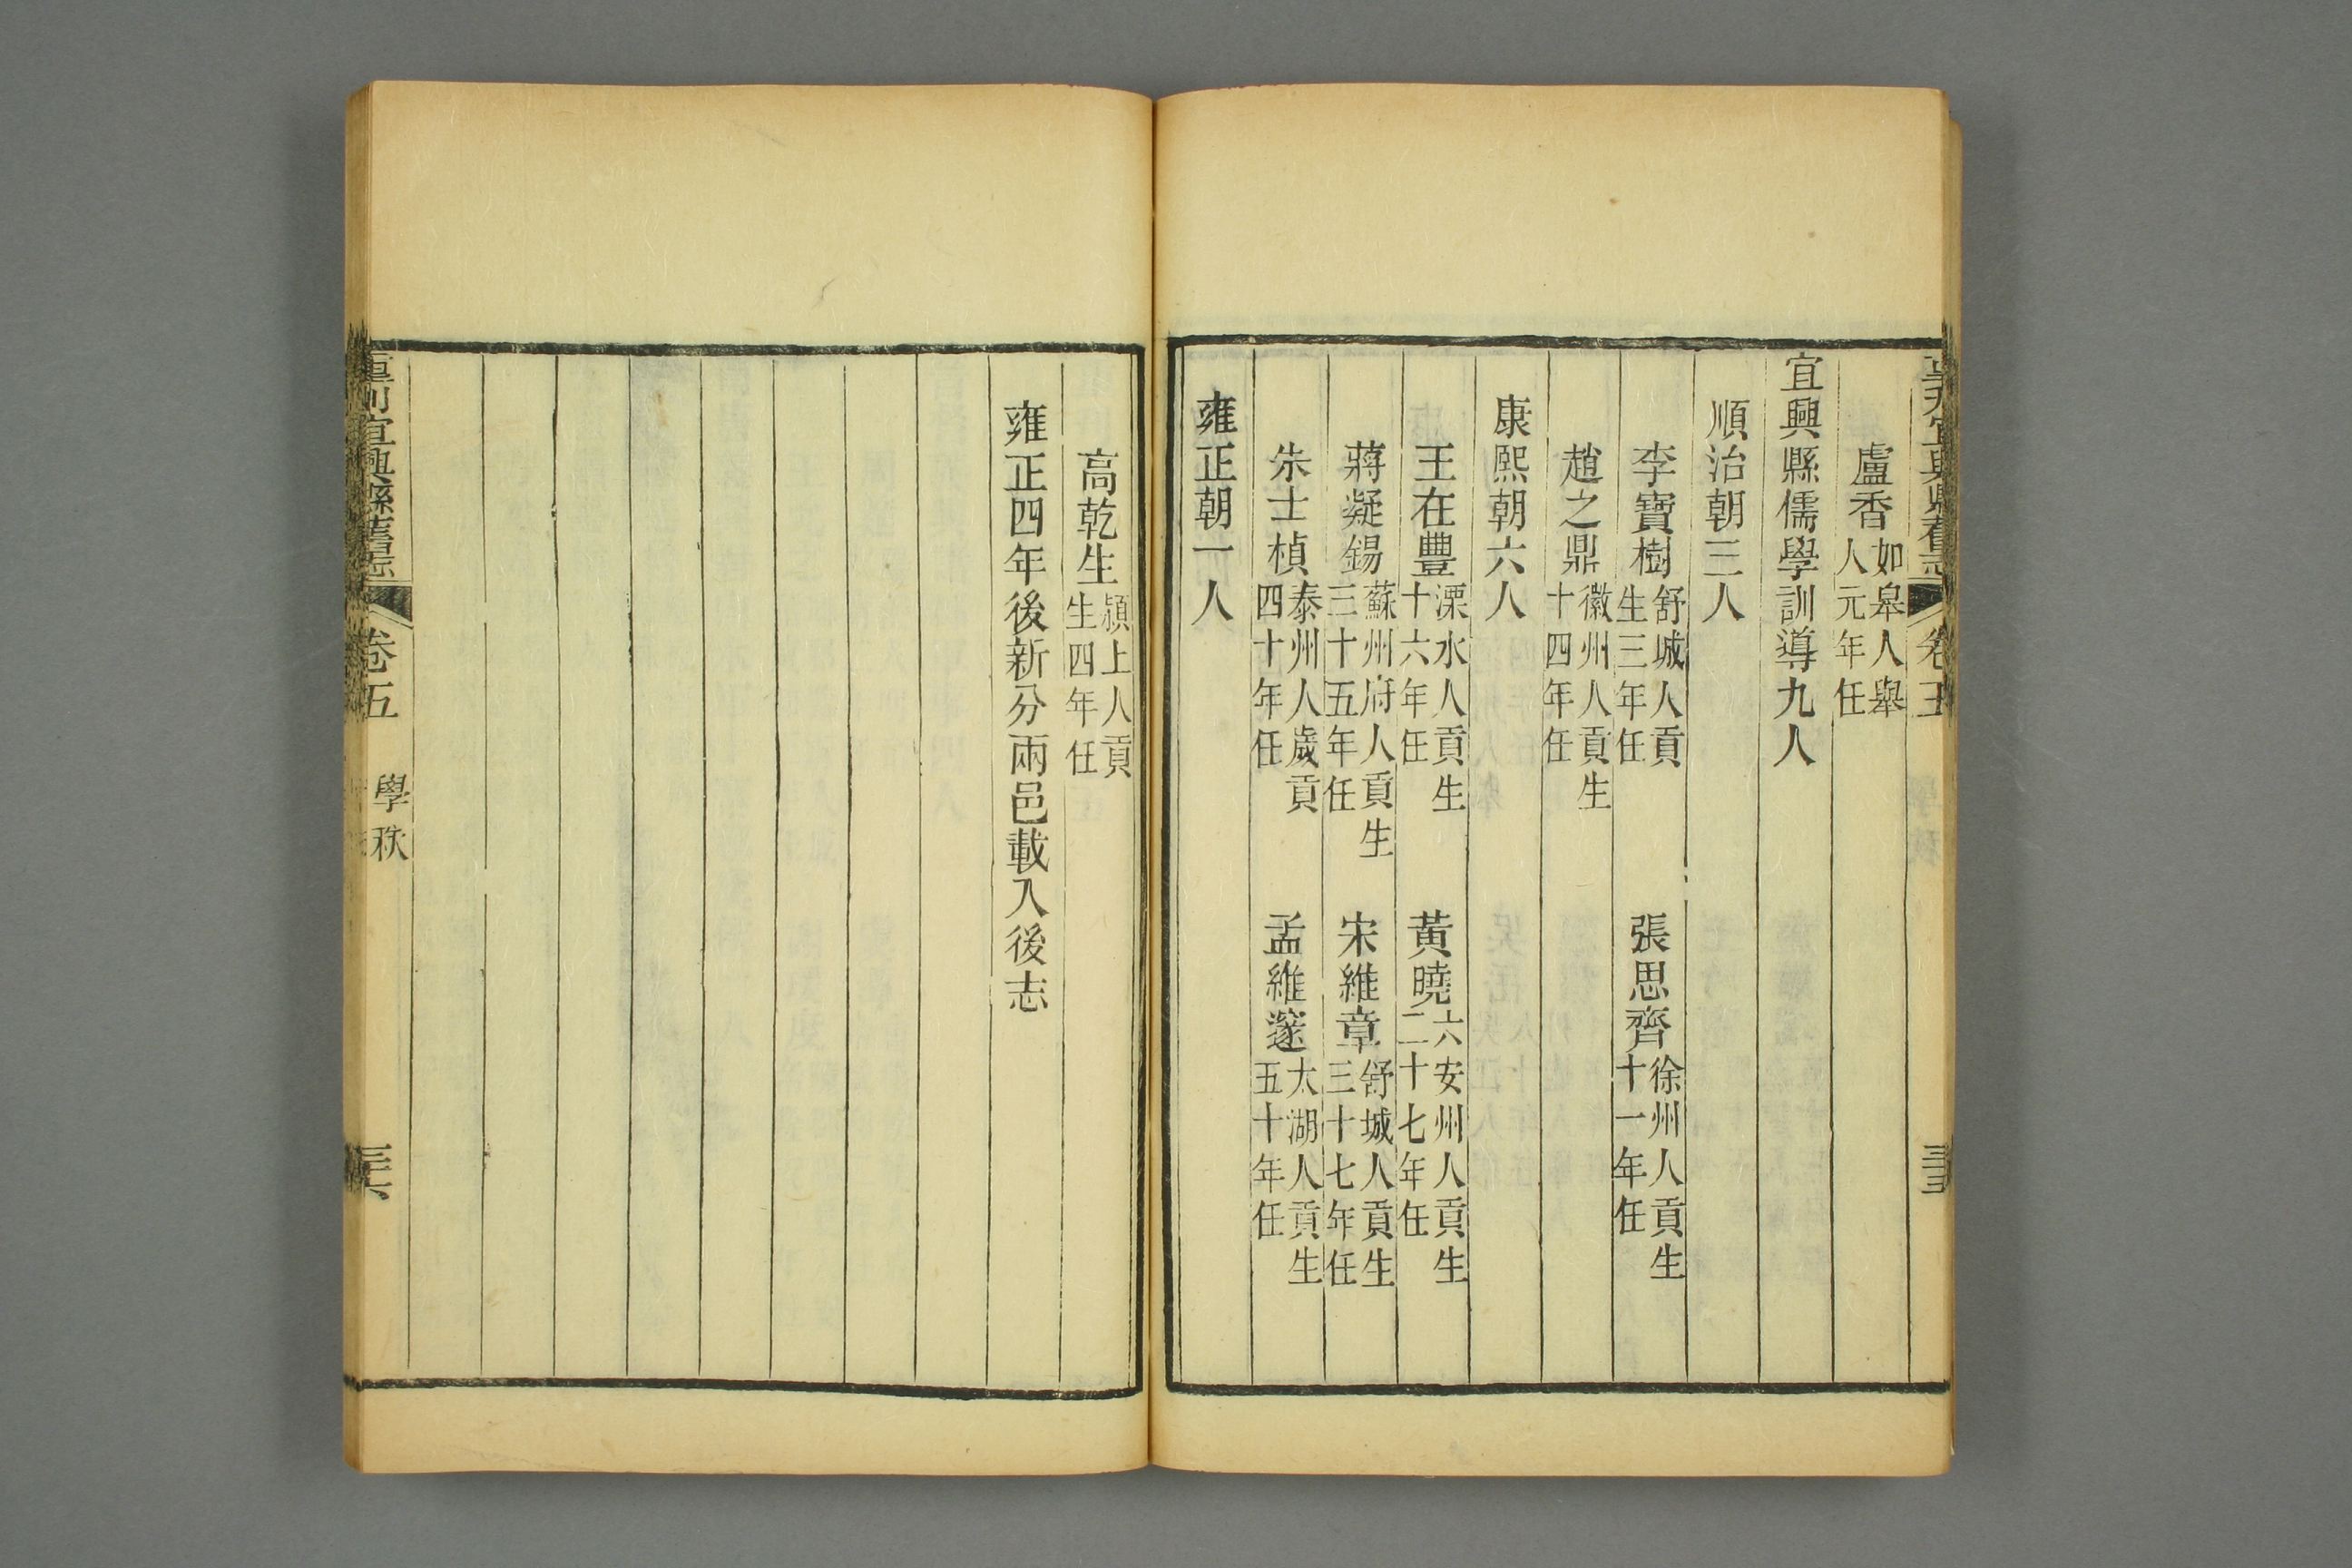 盧香 如皋人舉人元年任
宜興縣儒學訓導九人
順治朝三人
李寶樹 舒城人貢生三年任 張思齊 徐州人貢生十一年任
趙之鼎 徽州人貢生十四年任
康熙朝六人
王在豐 溧水人貢生十六年任 黃曉 六安州人貢生二十七年任
蔣凝錫 蘇州府人貢生三十五年任 宋維章 舒城人貢生三十七年任
朱士楨 泰州人歲貢四十年任 孟維邃 太湖人貢生五十年任
雍正朝一人
高乾生 潁上人貢生四年任
雍正四年後新分兩邑載入後志
重刊宜興縣舊志 卷五 學秩